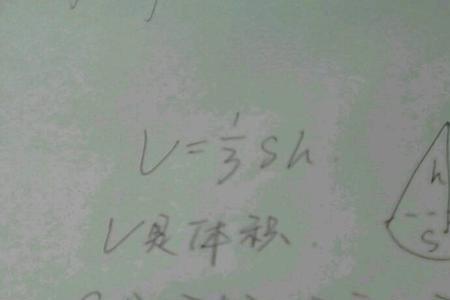 V=1/3 Sh
V是体积
h
S